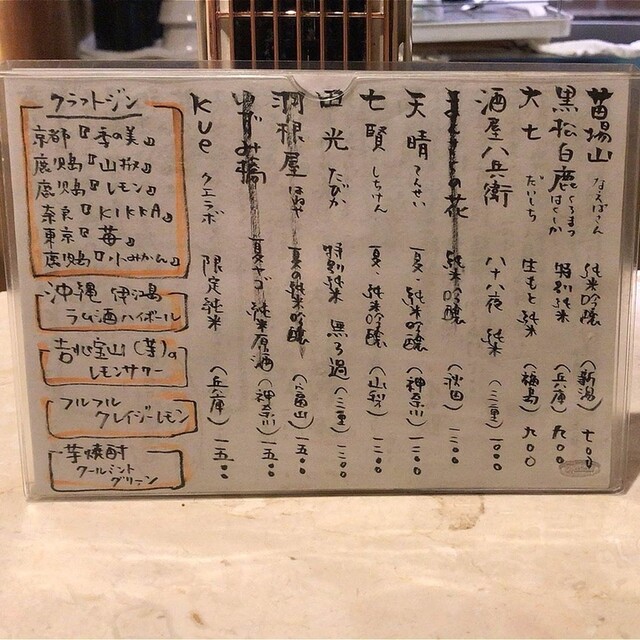 苗場山 なえばさん 純米吟醸 (新潟) 七〇〇
黒松白鹿 くろまつはくしか 特別純米 (兵庫) 九〇〇
大七 だいしち 生もと純米 (福島) 九〇〇
酒屋八兵衛 八十八夜 純米 (三重) 一〇〇〇
まんさくの花 純米吟醸 (秋田) 一二〇〇
天晴 てんせい 夏・純米吟醸 (神奈川) 一二〇〇
七賢 しちけん 夏・純米吟醸 (山梨) 一二〇〇
田光 たびか 特別純米 無ろ過 (三重) 一二〇〇
羽根屋 はねや 夏の純米吟醸 (富山) 一五〇〇
いずみ橋 夏ヤゴ 純米原酒 (神奈川) 一五〇〇
Kue クエラボ 限定純米 (兵庫) 一五〇〇
クラフトジン
京都『季の美』
鹿児島『山椒』
鹿児島『レモン』
奈良『KIKKA』
東京『苺』
鹿児島『小みかん』
沖縄 伊江島
ラム酒ハイボール
吉兆宝山(芋)の
レモンサワー
フルフル
クレイジーレモン
芋焼酎
クールミント
グリーン